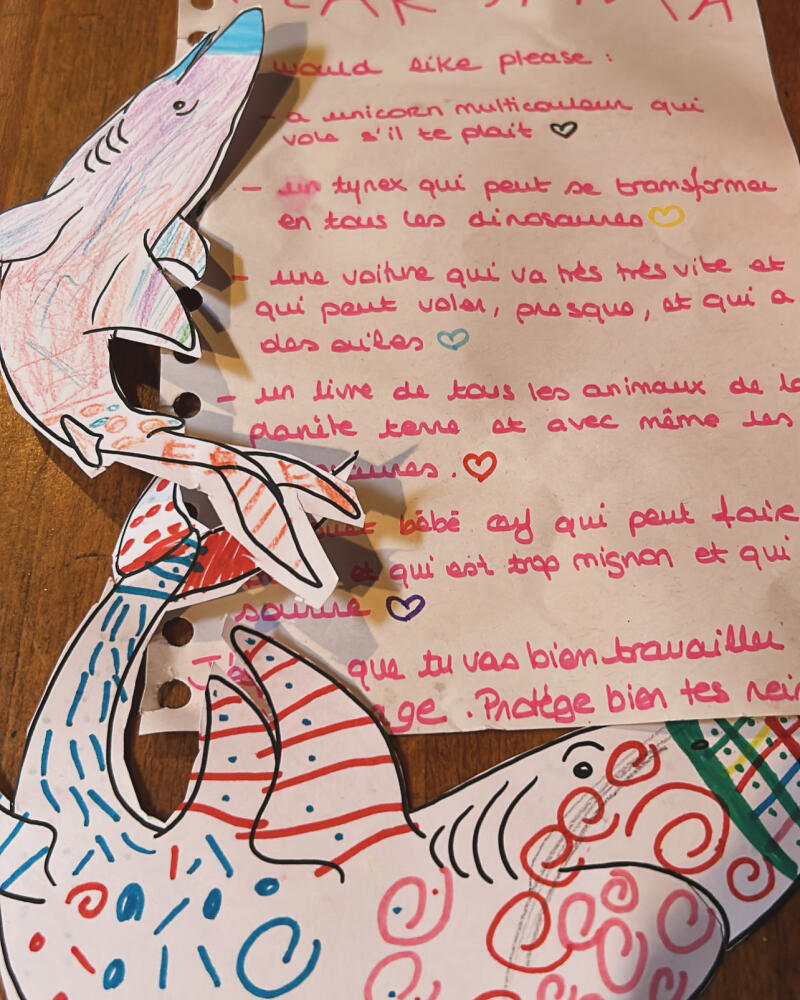 would like please :
- a unicorn multicouleur qui
vole s'il te plait
- un tyrex qui peut se transformer
en tous les dinosaures
- une voiture qui va très très vite et
qui peut voler, presque, et qui a
des ailes
- un livre de tous les animaux de la
planète terre et avec même les
bébé cerf qui peut faire
et qui est trop mignon et qui
sourire
que tu vas bien travailler
age. Protège bien tes